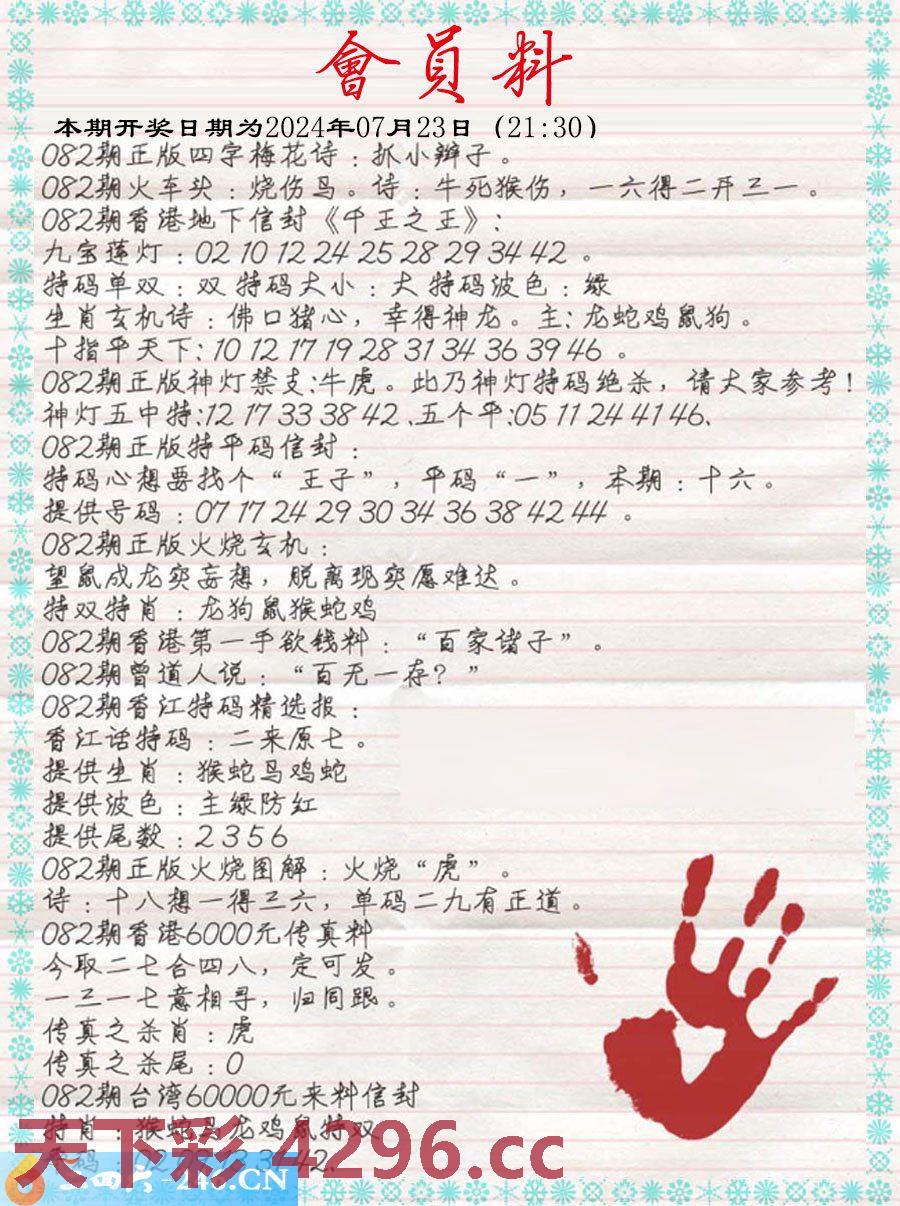 會員料
本期开奖日期为2024年07月23日（21:30）
082期正版四字梅花诗：抓小辫子。
082期火车头：烧伤鸟。诗：牛死猴伤，一六得二开三一。
082期香港地下信封《千王之王》：
九宝莲灯：02 10 12 24 25 28 29 34 42 。
特码单双：双 特码大小：大 特码波色：绿
生肖玄机诗：佛口猪心，幸得神龙。主：龙蛇鸡鼠狗。
十指平天下：10 12 17 19 28 31 34 36 39 46 。
082期正版神灯禁支：牛虎。此乃神灯特码绝杀，请大家参考！
神灯五中特：12 17 33 38 42 、五个平：05 11 24 41 46、
082期正版特平码信封：
特码心想要找个“王子”，平码“一”，本期：十六。
提供号码：07 17 24 29 30 34 36 38 42 44 。
082期正版火烧玄机：
望鼠成龙实妄想，脱离现实愿难达。
特双特肖：龙狗鼠猴蛇鸡
082期香港第一手欲钱料：“百家诸子”。
082期曾道人说：“百无一存？”
082期香江特码精选报：
香江话特码：二来原七。
提供生肖：猴蛇马鸡蛇
提供波色：主绿防红
提供尾数：2 3 5 6
082期正版火烧图解：火烧“虎”。
诗：十八想一得三六，单码二九有正道。
082期香港6000元传真料
今取二七合四八，定可发。
一三一七意相寻，归同跟。
传真之杀肖：虎
传真之杀尾：0
082期台湾60000元来料信封
特肖：猴蛇马龙鸡鼠特双
天下彩 4296.cc
246.CN